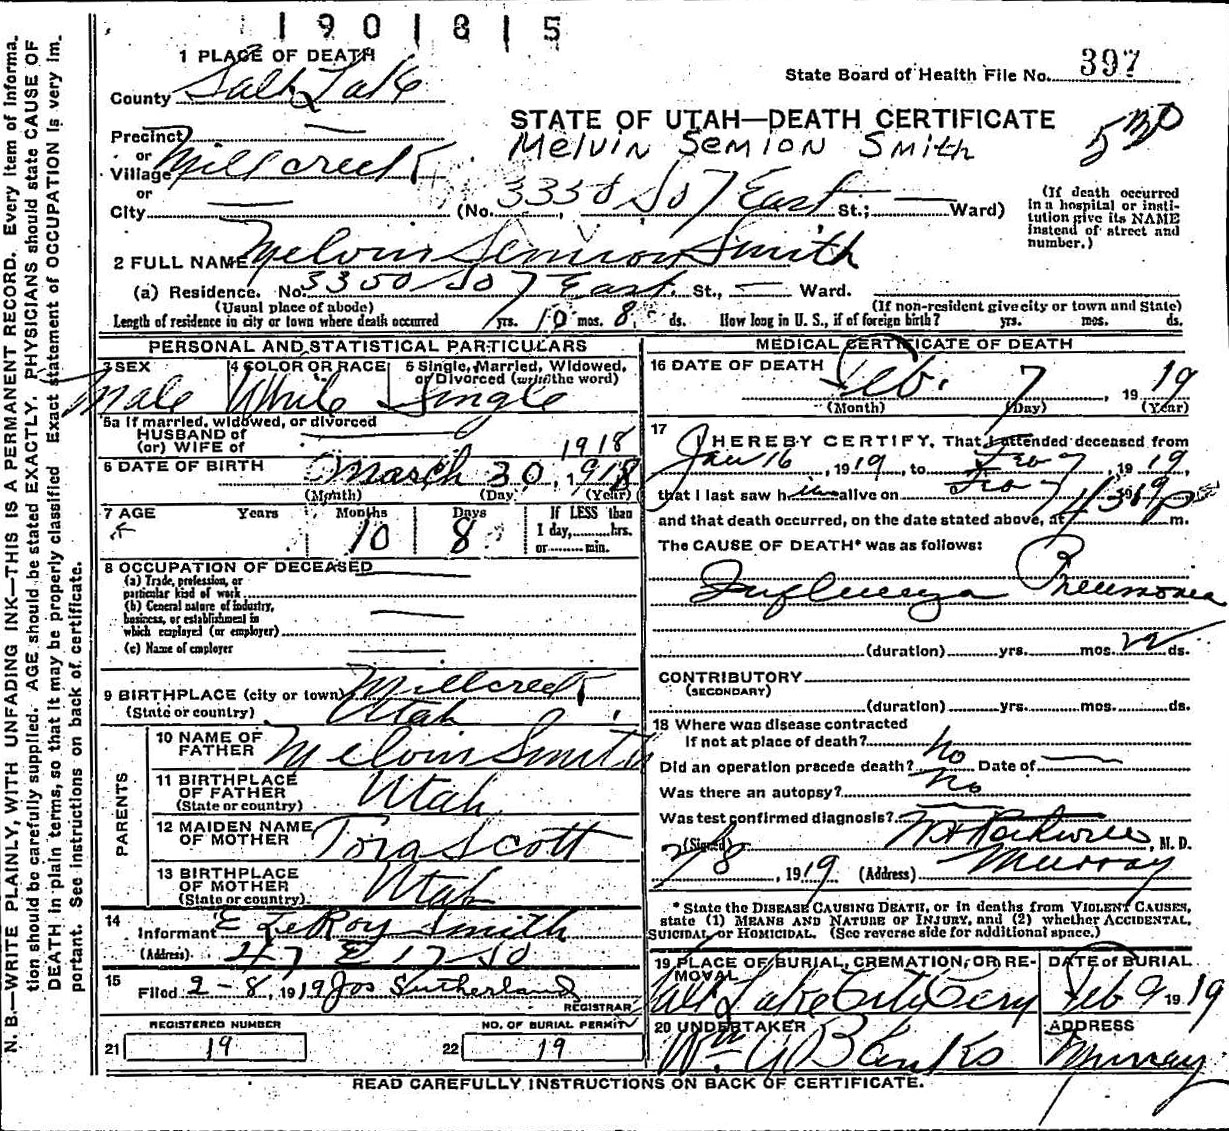 1901815
1 PLACE OF DEATH
State Board of Health File No. 397
County Salt Lake
STATE OF UTAH—DEATH CERTIFICATE
Precinct
Melvin Semion Smith
or
Village Millcreek
or
City (No. 3350 So 7 East St.; Ward)
(If death occurred in a hospital or institution give its NAME instead of street and number.)
2 FULL NAME Melvin Semion Smith
(a) Residence. No. 3350 So 7 East St., Ward.
(Usual place of abode) (If non-resident give city or town and State)
Length of residence in city or town where death occurred yrs. 10 mos. 8 ds. How long in U. S., if of foreign birth? yrs. mos. ds.
PERSONAL AND STATISTICAL PARTICULARS
3 SEX 4 COLOR OR RACE 5 Single, Married, Widowed, or Divorced (write the word)
Male White Single
5a If married, widowed, or divorced
HUSBAND of
(or) WIFE of
1918
6 DATE OF BIRTH March 30, 1918
(Month) (Day) (Year)
7 AGE Years Months Days If LESS than
1 day,........hrs.
10 8 or........min.
8 OCCUPATION OF DECEASED
(a) Trade, profession, or
particular kind of work
(b) General nature of industry,
business, or establishment in
which employed (or employer)
(c) Name of employer
9 BIRTHPLACE (city or town) Millcreek
(State or country) Utah
PARENTS
10 NAME OF FATHER Melvin Smith
11 BIRTHPLACE OF FATHER Utah
(State or country)
12 MAIDEN NAME OF MOTHER Scott
13 BIRTHPLACE OF MOTHER Utah
(State or country)
14 Informant E LeRoy Smith
(Address) 47 E 17 So
15 Filed 2-8, 1919 Jos Sutherland
REGISTRAR
REGISTERED NUMBER NO. OF BURIAL PERMIT
21 19 22 19
MEDICAL CERTIFICATE OF DEATH
16 DATE OF DEATH Feb. 7, 1919
(Month) (Day) (Year)
17 I HEREBY CERTIFY, That I attended deceased from
Jan 16, 1919, to Feb 7, 1919,
that I last saw him alive on Feb 7, 1919
and that death occurred, on the date stated above, at m.
The CAUSE OF DEATH* was as follows:
Influenza Pneumonia
(duration) yrs. mos. 22 ds.
CONTRIBUTORY
(SECONDARY)
(duration) yrs. mos. ds.
18 Where was disease contracted
if not at place of death?
Did an operation precede death? No Date of
Was there an autopsy? No
Was test confirmed diagnosis?
(Signed) M. D.
2/8, 1919 (Address) Murray
* State the DISEASE CAUSING DEATH, or in deaths from VIOLENT CAUSES,
state (1) MEANS AND NATURE OF INJURY, and (2) whether ACCIDENTAL,
SUICIDAL, or HOMICIDAL. (See reverse side for additional space.)
19 PLACE OF BURIAL, CREMATION, OR REMOVAL DATE of BURIAL
Salt Lake City Cem Feb 9 1919
20 UNDERTAKER ADDRESS
Wm Banks Murray
READ CAREFULLY INSTRUCTIONS ON BACK OF CERTIFICATE.
N. B—WRITE PLAINLY, WITH UNFADING INK—THIS IS A PERMANENT RECORD. Every item of informa-
tion should be carefully supplied. AGE should be stated EXACTLY. PHYSICIANS should state CAUSE OF
DEATH in plain terms, so that it may be properly classified. Exact statement of OCCUPATION is very im-
portant. See instructions on back of certificate.